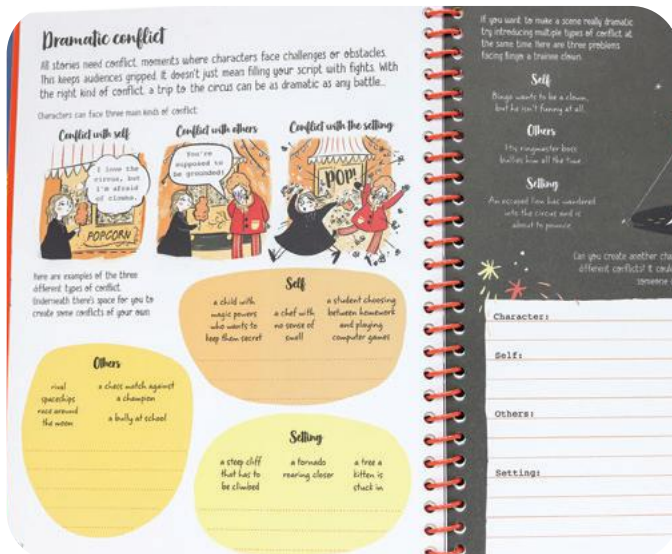 Dramatic conflict
All stories need conflict, moments where characters face challenges or obstacles.
This keeps audiences gripped. It doesn't just mean filling your script with fights. With
the right kind of conflict, a trip to the circus can be as dramatic as any battle...
Characters can face three main kinds of conflict:
Conflict with self
I love the
circus, but
I'm afraid
of clowns.
POPCORN
Conflict with others
You're
supposed to
be grounded!
Conflict with the setting
POP!
Here are examples of the three
different types of conflict.
Underneath there's space for you to
create some conflicts of your own.
Self
a child with
magic powers
who wants to
keep them secret
a chef with
no sense of
smell
a student choosing
between homework
and playing
computer games
Others
rival
spaceships
race around
the moon
a chess match against
a champion
a bully at school
Setting
a steep cliff
that has to
be climbed
a tornado
roaring closer
a tree a
kitten is
stuck in
If you want to make a scene really dramatic
try introducing multiple types of conflict at
the same time. Here are three problems
facing Bingo a trainee clown.
Self
Bingo wants to be a clown,
but he isn't funny at all.
Others
His ringmaster boss
bullies him all the time.
Setting
An escaped lion has wandered
into the circus and is
about to pounce.
Can you create another cha
different conflicts? It coul
someone
Character:
Self:
Others:
Setting: